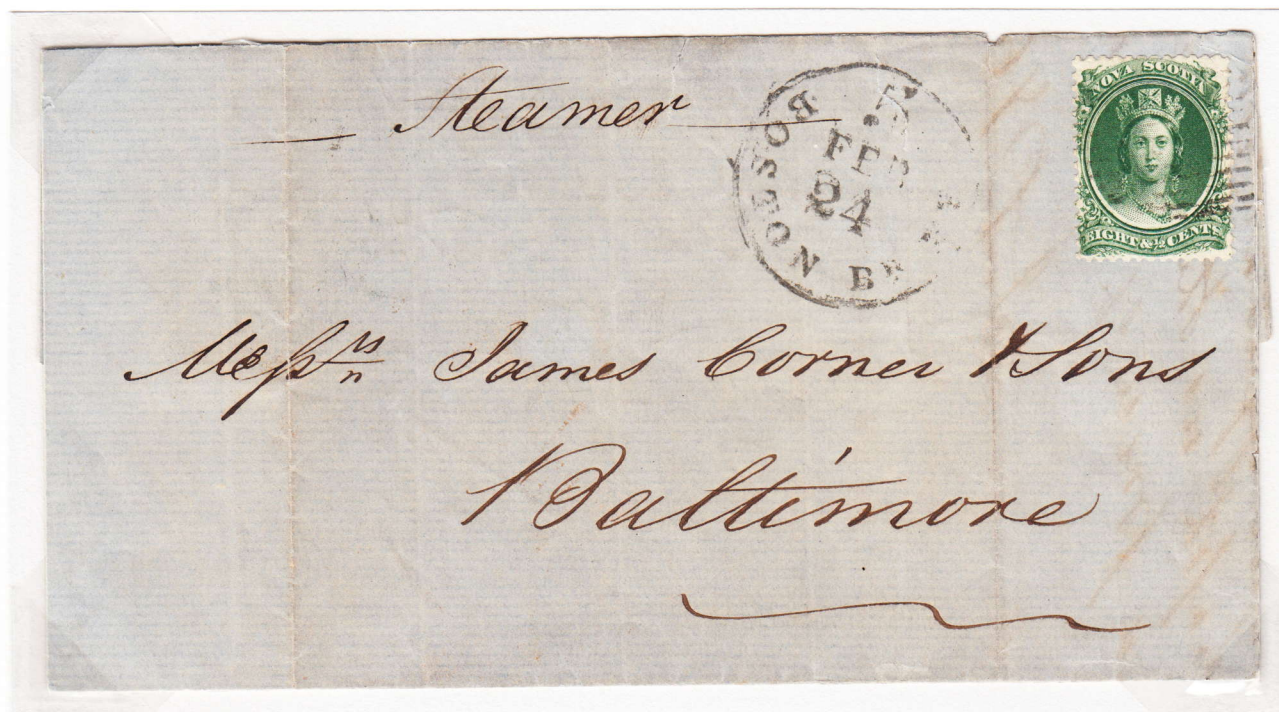 Steamer
BOSTON BR. PKT.
5
FEB
24
NOVA SCOTIA
EIGHT & ½ CENTS
Messrs James Corner & Sons
Baltimore